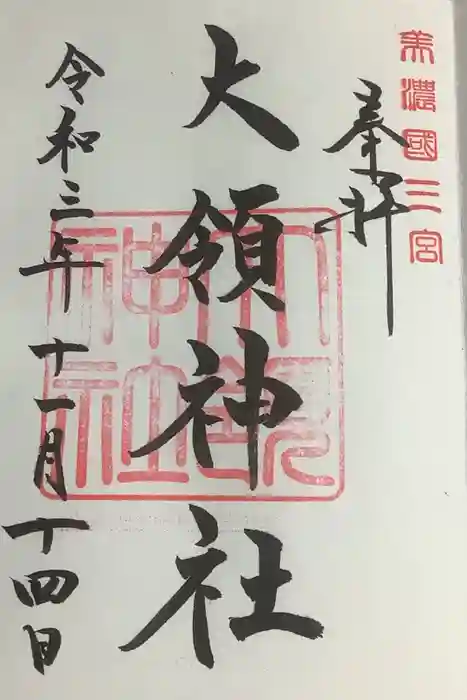 美濃國三宮
奉拝
大領神社
令和三年十一月十四日